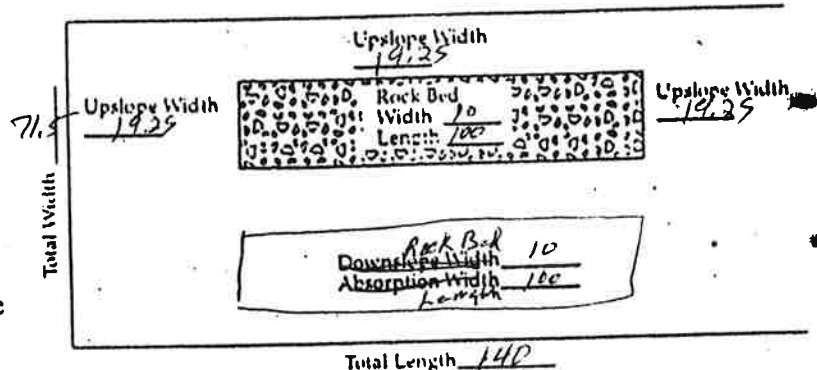 Upslope Width
19.25
Upslope Width
19.25
Rock Bed
Width 10
Length 100
Upslope Width
19.25
71.5
Total Width
Rock Bed
Downslope Width 10
Absorption Width 100
Length
Total Length 140